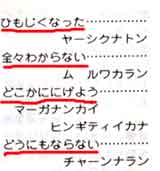 ひもじくなった……………
ヤーシクナトン
全々わからない……………
ム　ルワカラン
どこかににげよう…………
マーガナンカイ
ヒンギティイカナ
どうにもならない…………
チャーンナラン